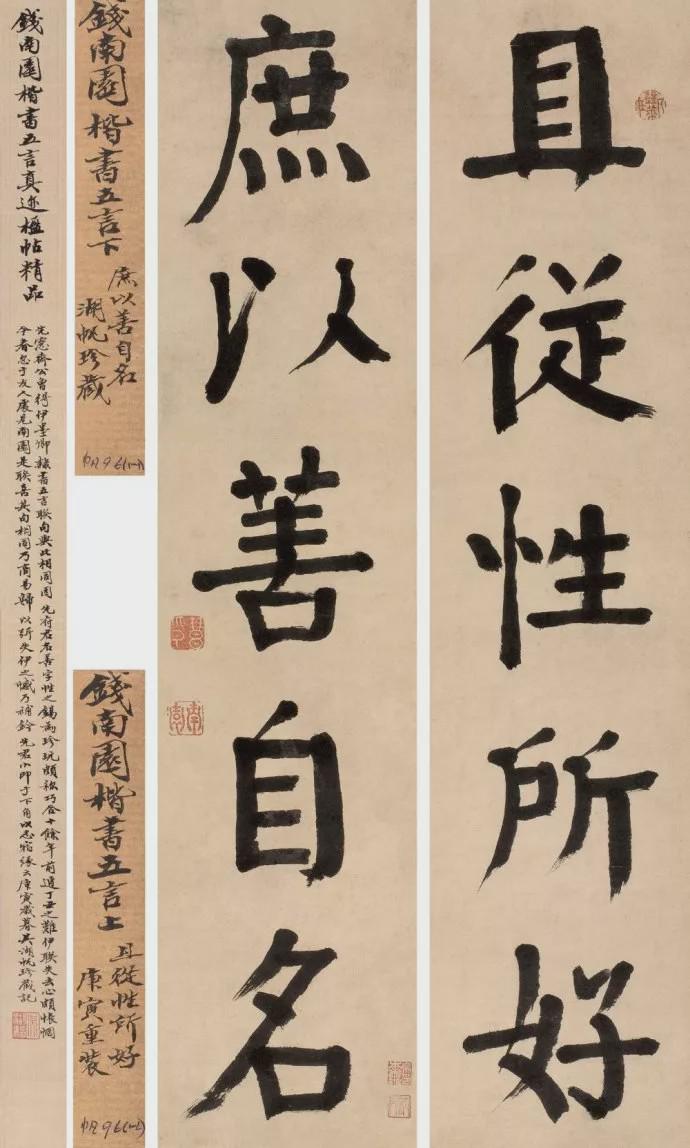 且從性所好
庶以善自名
錢南園楷書五言下
庶以善自名
湖帆珍藏
錢南園楷書五言上
且從性所好
庚寅重裝
錢南園楷書五言真迹楹帖精品
先愙齋公曾得伊墨卿隸書五言聯句與此相同因先府君名善字性之錫為珍玩頗詫巧合十餘年前遭丁丑之難伊聯失去心頗悵惘
今春忽于友人處見南園是聯喜其句相同乃商易歸以彌失伊之憾乃補鈐先君小印于下角以志翰緣云庚寅歲暮吳湖帆珍藏記